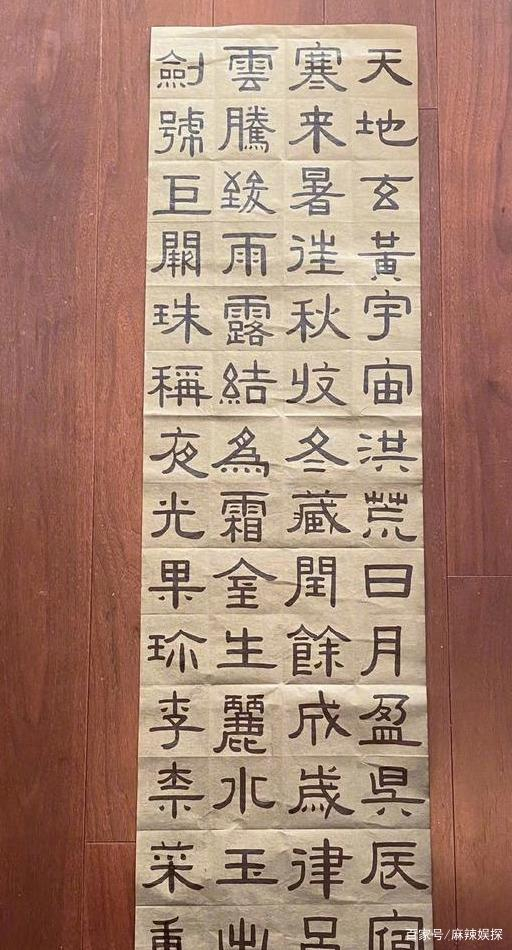 天地玄黃宇宙洪荒日月盈昃辰宿
寒来暑往秋收冬藏閏餘成歲律呂
雲騰致雨露結為霜金生麗水玉出
劍號巨闕珠稱夜光果珎李柰菜重
百家号/麻辣娱探